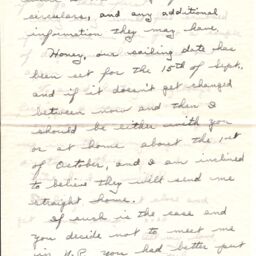 circulars, and any additional
information they may have.
Honey, our sailing date has
been set for the 15th of Sept.
and if it doesn't get changed
between now and then I
should be either with you
or at home about the 1st
of October, and I am inclined
to believe they will send me
straight home.
If such is the case and
you decide not to meet me
in N.Y. you had better put